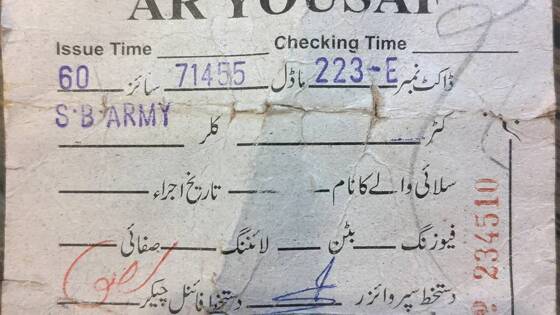 AR YOUSAF
Issue Time Checking Time
ڈاکٹ نمبر 223-E ماڈل 71455 سائز 60
کٹر کلر S·B ARMY
سلائی والے کا نام تاریخ اجراء
فیوزنگ بٹن لائننگ صفائی
دستخط سپروائزر دستخط فائنل چیکر
234510